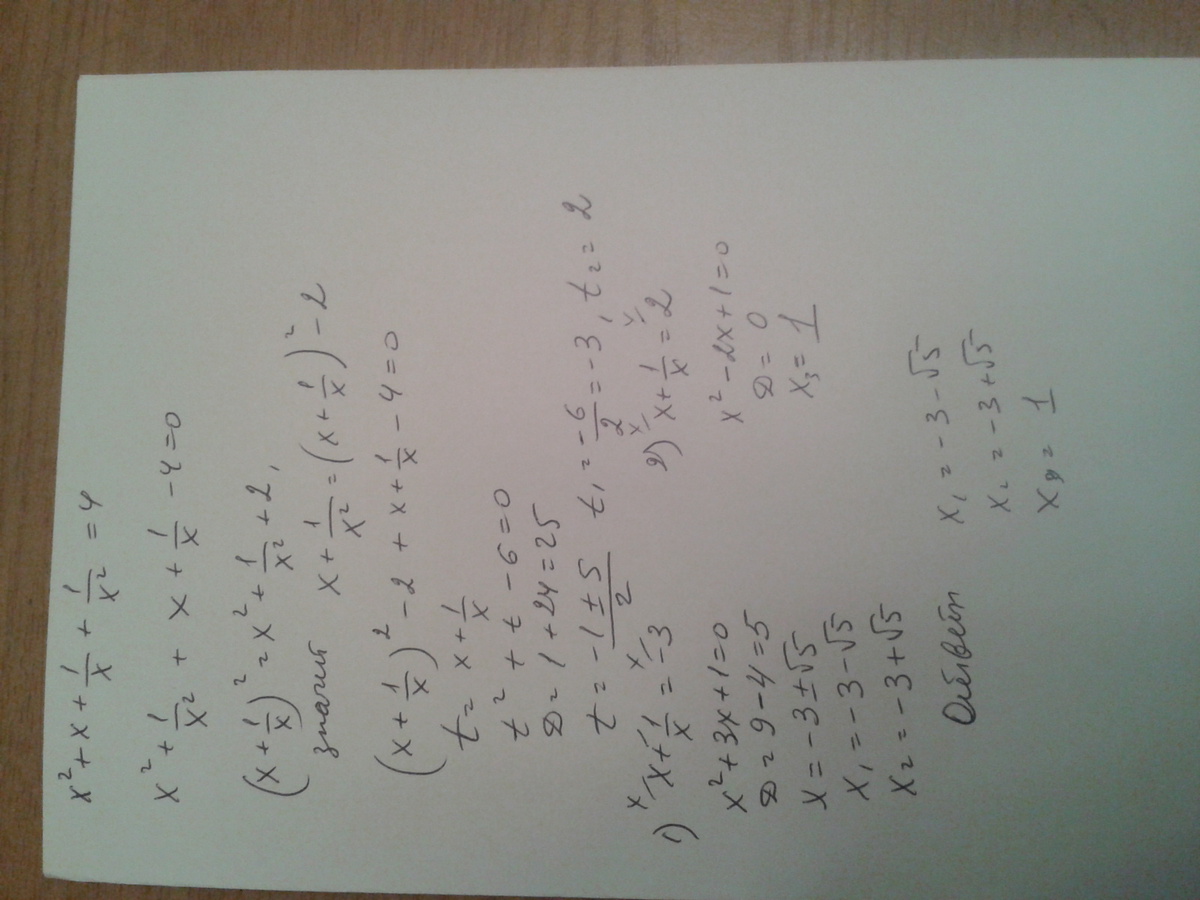 x² + x + 1/x + 1/x² = 4
x² + 1/x² + x + 1/x - 4 = 0
(x + 1/x)² = x² + 1/x² + 2,
значит x + 1/x² = (x + 1/x)² - 2
(x + 1/x)² - 2 + x + 1/x - 4 = 0
t = x + 1/x
t² + t - 6 = 0
D = 1 + 24 = 25
t = (-1 ± 5)/2 t₁ = -6/2 = -3, t₂ = 2
1) x + 1/x = -3
x² + 3x + 1 = 0
D = 9 - 4 = 5
x = -3 ± √5
x₁ = -3 - √5
x₂ = -3 + √5
2) x + 1/x = 2
x² - 2x + 1 = 0
D = 0
x₃ = 1
Ответ x₁ = -3 - √5
x₂ = -3 + √5
x₃ = 1